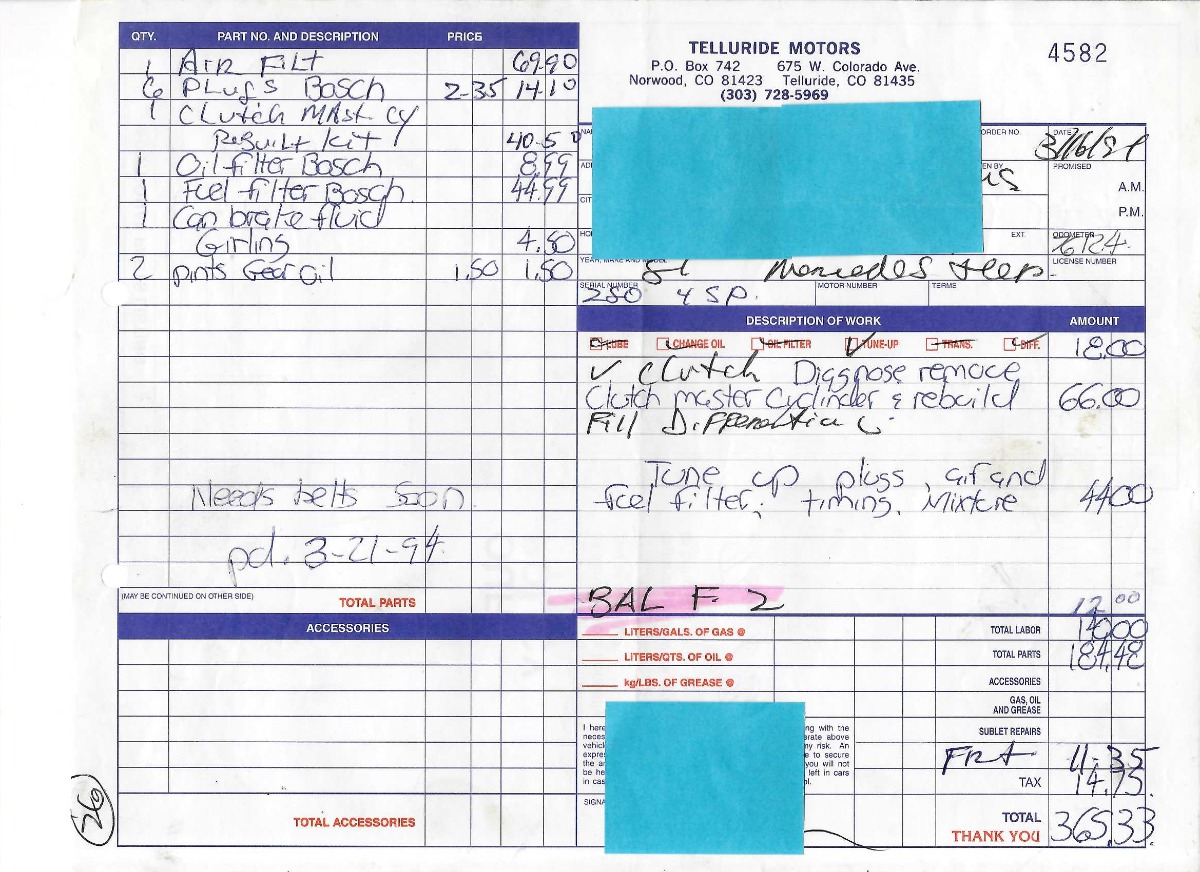 QTY. PART NO. AND DESCRIPTION PRICE
1 AIR FILT 69.90
6 PLUGS BOSCH 2-35 14.10
1 CLUTCH MAST CY
ReBuilt Kit 40-50
1 Oil filter Bosch 8.99
1 Fuel filter Bosch 44.99
1 Can brake fluid
Girling 4.50
2 pints Gear oil 1.50 1.50
Needs belts Soon
pd. 3-21-94
(MAY BE CONTINUED ON OTHER SIDE) TOTAL PARTS
ACCESSORIES
TOTAL ACCESSORIES
26
TELLURIDE MOTORS
P.O. Box 742 675 W. Colorado Ave.
Norwood, CO 81423 Telluride, CO 81435
(303) 728-5969
4582
ORDER NO. DATE
PROMISED
A.M.
P.M.
EXT. ODOMETER
YEAR, MAKE AND MODEL LICENSE NUMBER
Mercedes Jeep
SERIAL NUMBER MOTOR NUMBER TERMS
280 4 SP.
DESCRIPTION OF WORK AMOUNT
LUBE CHANGE OIL OIL FILTER TUNE-UP TRANS. DIFF. 18.00
✓ Clutch Diagnose remove
Clutch master Cylinder & rebuild 66.00
Fill Differential
Tune up plugs, air and
fuel filter, timing, Mixture 44.00
BAL F. 2 12.00
LITERS/GALS. OF GAS @ TOTAL LABOR 140.00
LITERS/QTS. OF OIL @ TOTAL PARTS 184.48
kg/LBS. OF GREASE @ ACCESSORIES
GAS, OIL
AND GREASE
SUBLET REPAIRS
FRT 11-35
TAX 14.75
TOTAL 365.33
THANK YOU
I here
neces
vehicl
expre
the a
be he
in cas
ng with the
erate above
ny risk. An
e to secure
you will not
left in cars
ol.
SIGNA